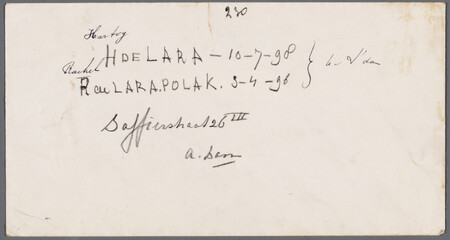 230
Hartog
H DE LARA – 10-7-98
Rachel
R de LARA.POLAK. 3-4-96
Saffierstraat 26 III
A.dam